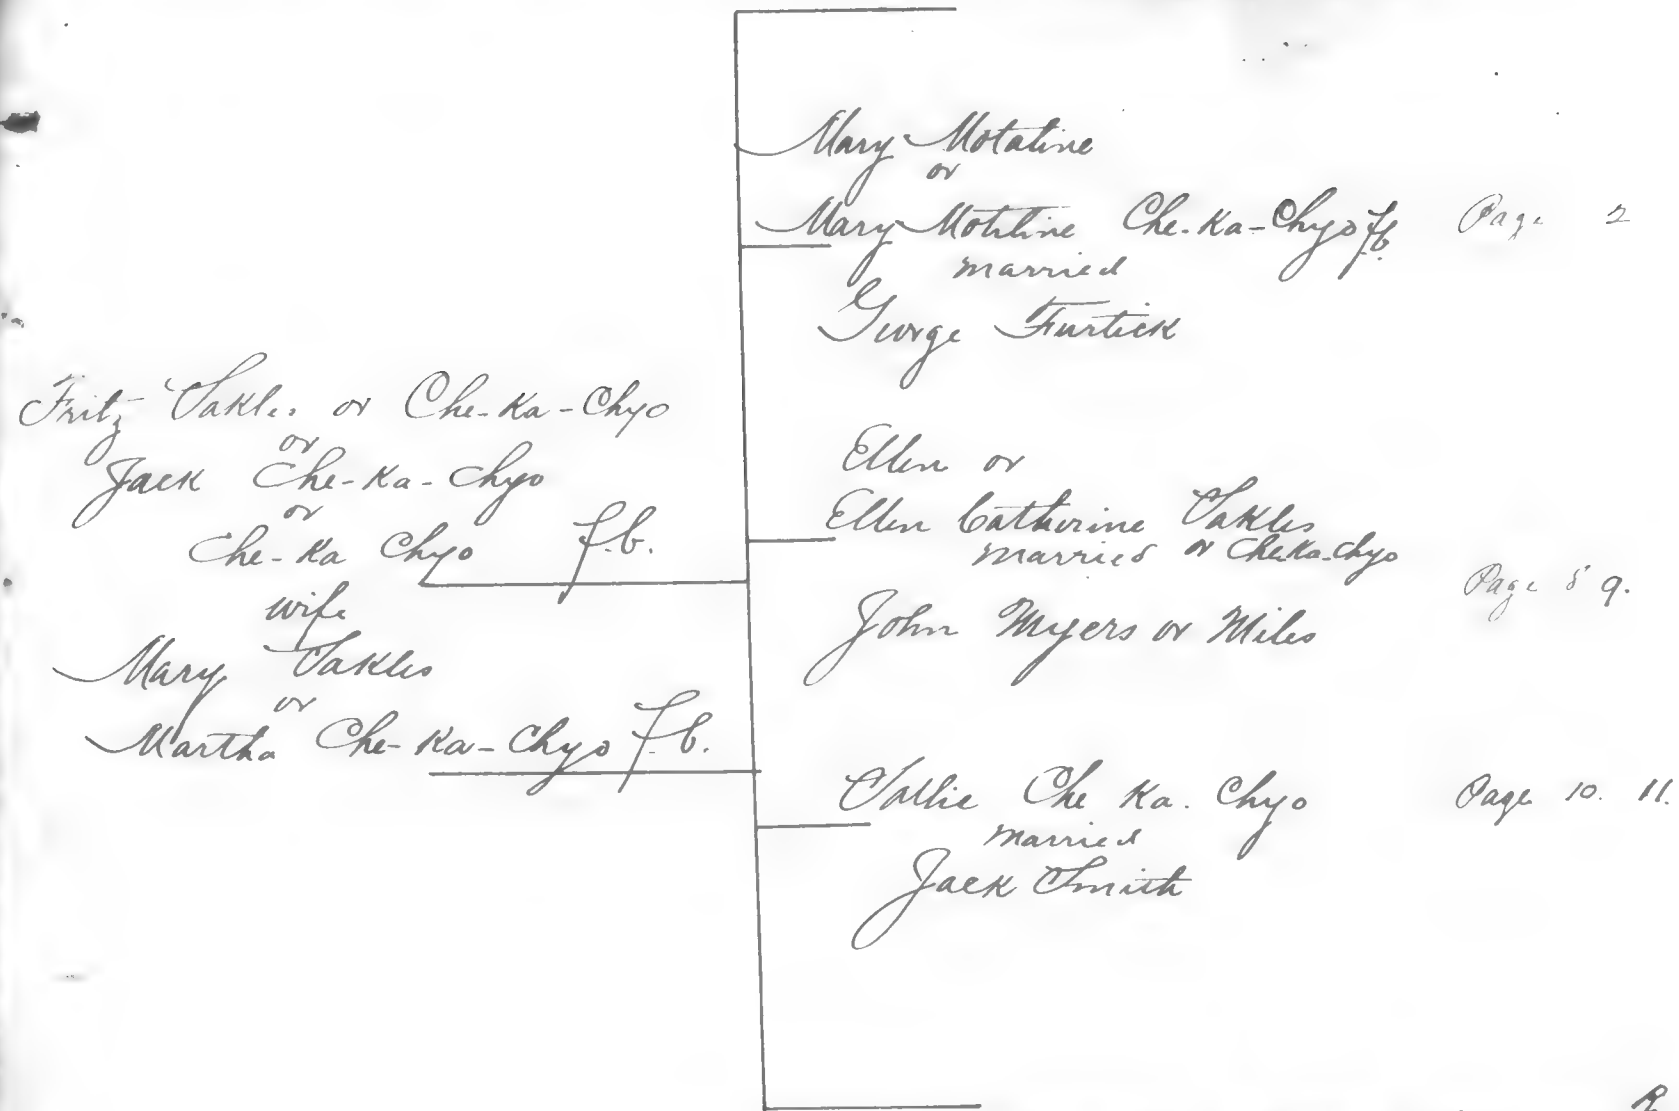 Fritz Sakles or Che-Ka-Chyo
or
Jack Che-Ka-Chyo
or
Che-Ka Chyo f.b.
wife
Mary Sakles
or
Martha Che-Ka-Chyo f.b.
Mary Motatine
or
Mary Motstine Che-Ka-Chyo f.b. Page 2
married
George Furtick
Ellen or
Ellen Catherine Sakles
married or Che-Ka-Chyo
Page 8 9.
John Myers or Miles
Sallie Che Ka. Chyo Page 10. 11.
married
Jack Smith